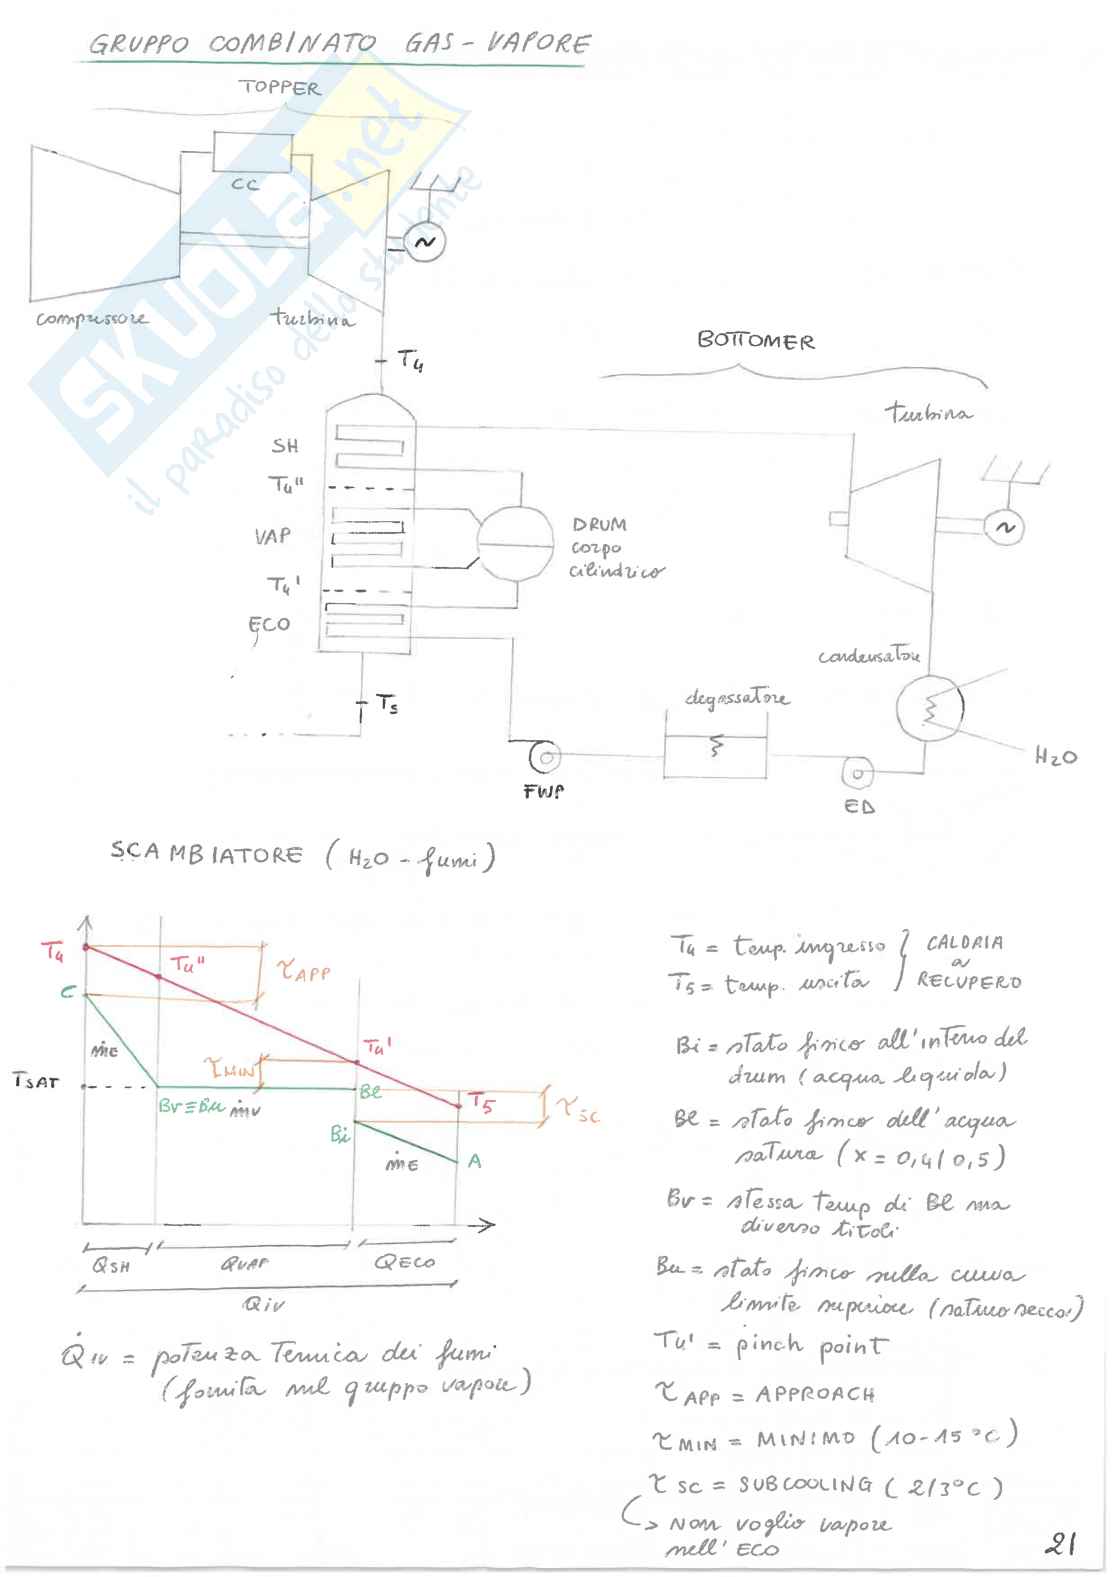 GRUPPO COMBINATO GAS - VAPORE
TOPPER
CC
~
compressore
turbina
T4
BOTTOMER
turbina
SH
T4"
VAP
T4'
ECO
DRUM
corpo
cilindrico
~
condensatore
T5
degassatore
H2O
FWP
ED
SKUOLa.net
il paradiso dello studente
SCAMBIATORE (H2O - fumi)
T4
T4"
τAPP
C
ṁE
τMIN
T4'
TSAT
Bv≡Bu
ṁv
Bl
T5
τSC
Bi
ṁE
A
QSH
QVAP
QECO
QIV
Q̇IV = potenza Termica dei fumi
(fornita nel gruppo vapore)
T4 = temp. ingresso
T5 = temp. uscita
CALDAIA
a
RECUPERO
Bi = stato fisico all'interno del
drum (acqua liquida)
Bl = stato fisico dell'acqua
satura (x = 0,4/0,5)
Bv = stessa temp di Bl ma
diverso titoli
Bu = stato fisico sulla curva
limite superiore (saturo secco)
T4' = pinch point
τAPP = APPROACH
τMIN = MINIMO (10-15 °C)
τSC = SUBCOOLING (2/3°C)
→ NON voglio vapore
nell' ECO
21